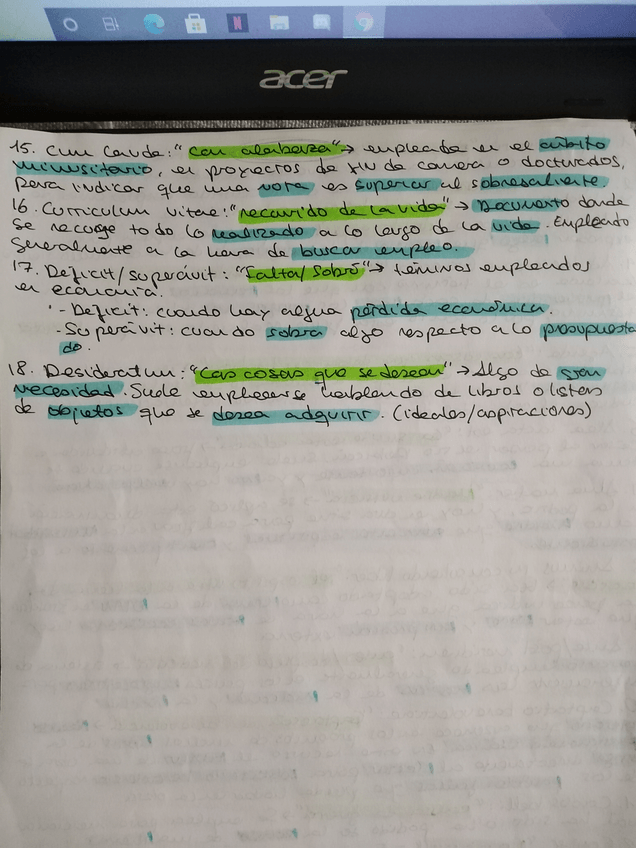 acer
15. Cum Laude: "con alabanza" → empleada en el ámbito
universitario, en proyectos de fin de carrera o doctorados,
para indicar que una nota es superior al sobresaliente.
16. Curriculum vitae: "recorrido de la vida" → Documento donde
se recoge todo lo realizado a lo largo de la vida. Empleado
generalmente a la hora de buscar empleo.
17. Deficit/superávit: "Falta/Sobró" → términos empleados
en economía.
- Deficit: cuando hay alguna pérdida económica.
- Superávit: cuando sobra algo respecto a lo presupuesta
do.
18. Desideratum: "Las cosas que se desean" → Algo de gran
necesidad. Suele emplearse hablando de libros o listas
de objetos que se desea adquirir. (ideales/aspiraciones)